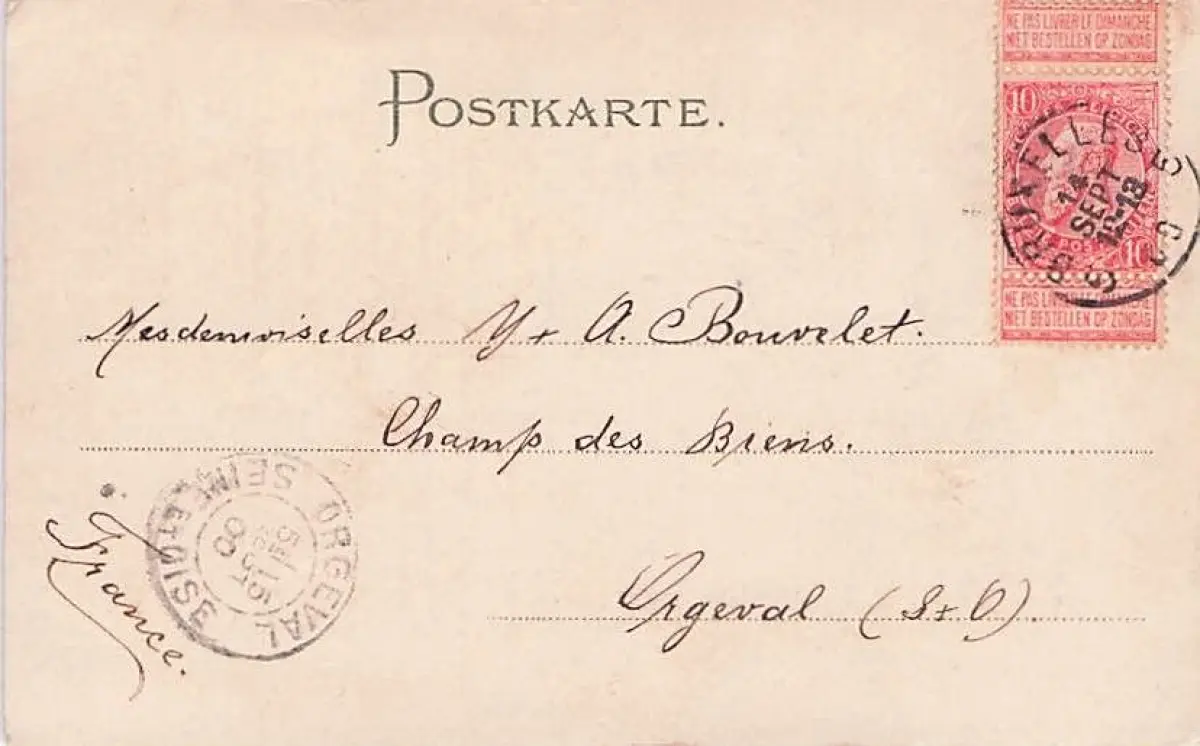 NE PAS LIVRER LE DIMANCHE
NIET BESTELLEN OP ZONDAG
POSTKARTE.
10
BRUXELLES
14
SEPT
12-13
10
NE PAS LIVRER LE DIMANCHE
NIET BESTELLEN OP ZONDAG
Mesdemoiselles Y + A. Bouvelet.
Champ des Biens.
Orgeval (S + O)
France.
ORGEVAL
SEINE ET OISE
15
SEPT
00